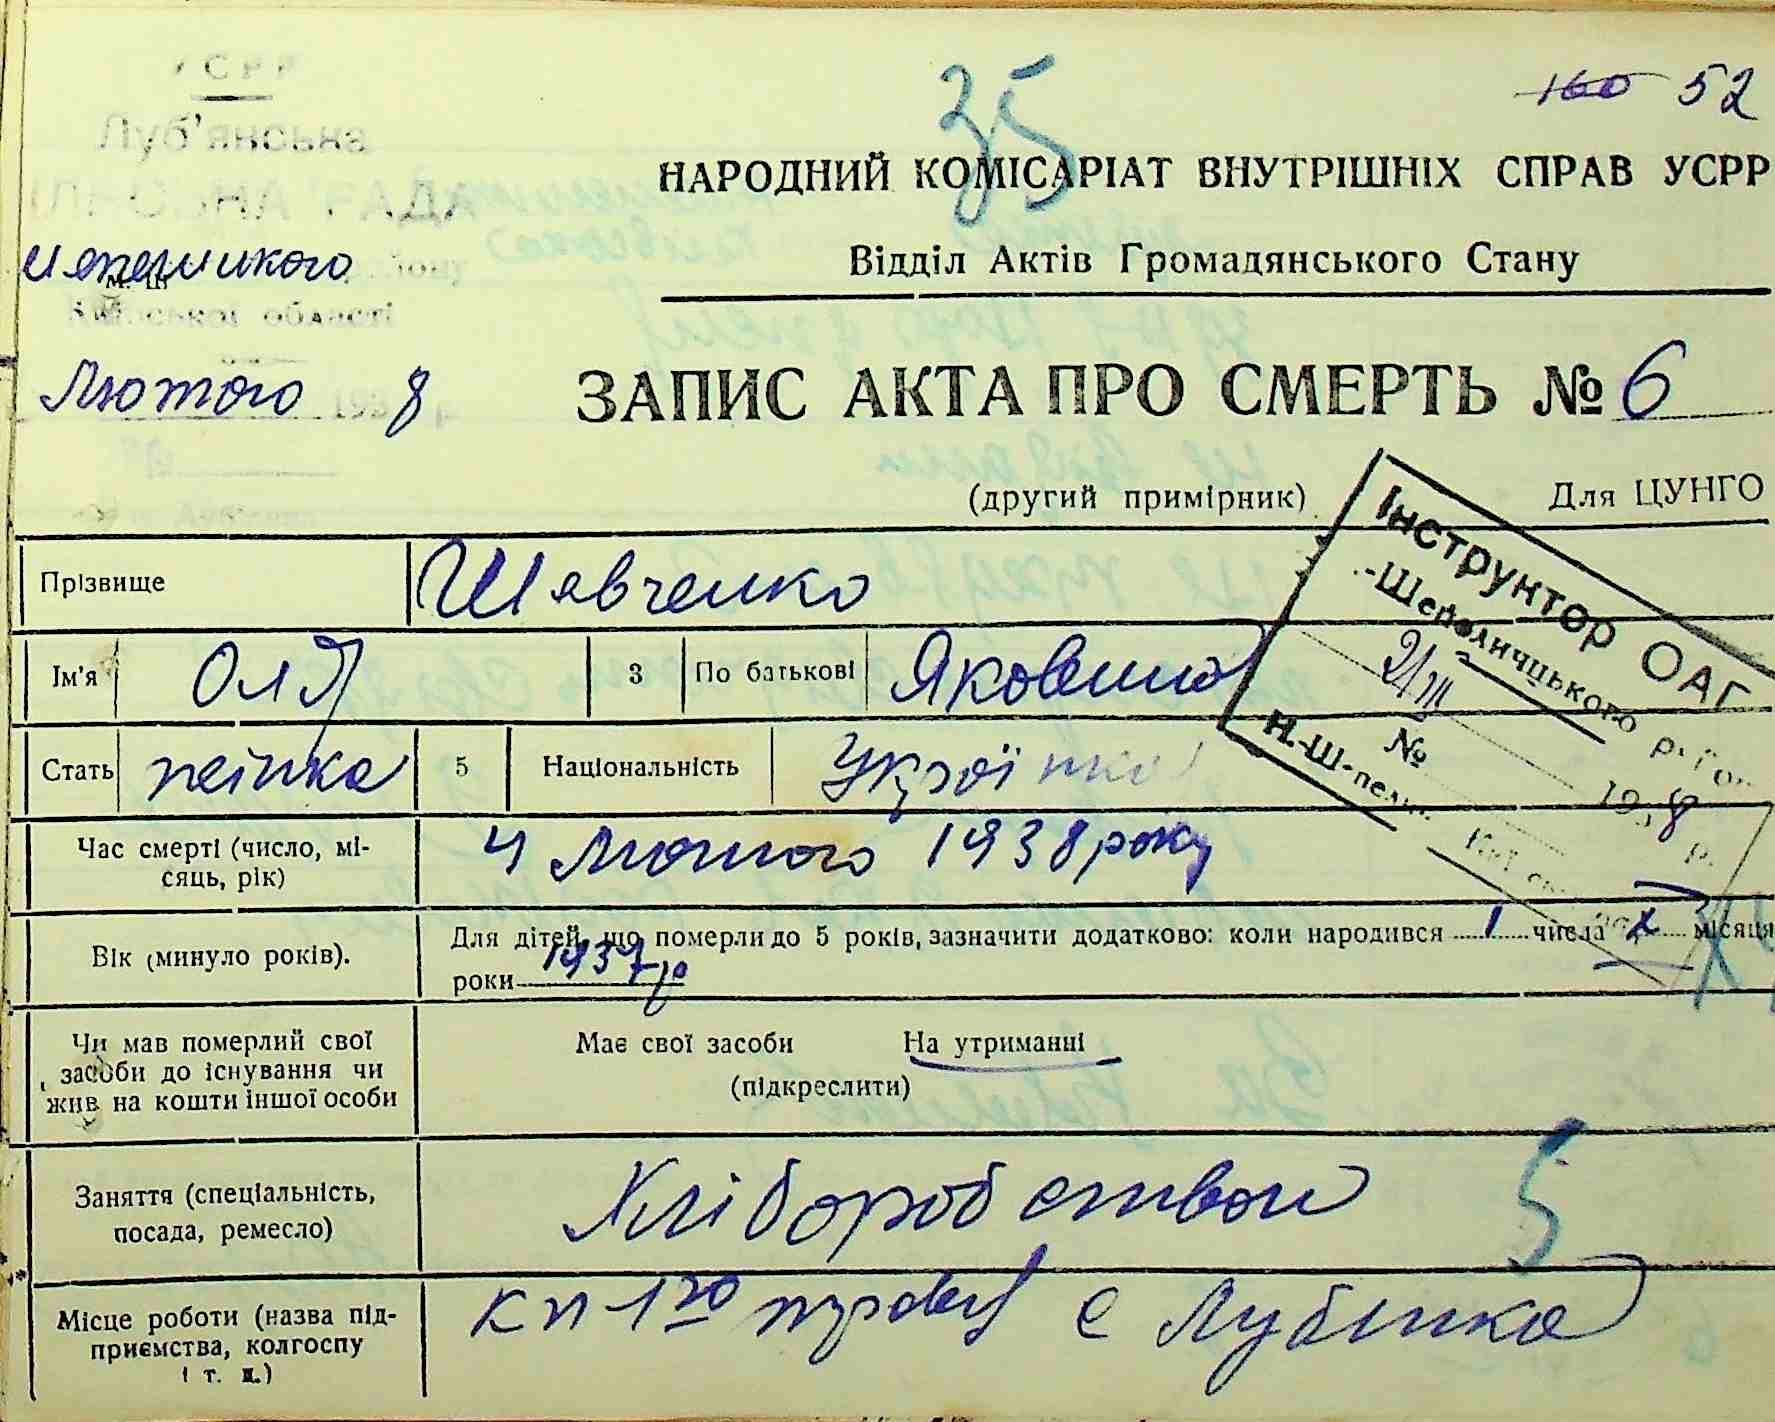 УСРР
160 52
35
Луб'янська
НАРОДНИЙ КОМІСАРІАТ ВНУТРІШНІХ СПРАВ УСРР
РАДА
Відділ Актів Громадянського Стану
області
Лютого 193 8 р.
ЗАПИС АКТА ПРО СМЕРТЬ № 6
(другий примірник)
Для ЦУНГО
Інструктор ОАГС
№
193 8 р.
Прізвище Шевченко
Ім'я Оля 3 По батькові Яковлівна
Стать жінка 5 Національність Українка
Час смерті (число, мі-
сяць, рік) 4 Лютого 1938 року
Вік (минуло років). Для дітей, що померли до 5 років, зазначити додатково: коли народився 1 числа X місяця
роки 1937 р
Чи мав померлий свої
засоби до існування чи
жив на кошти іншої особи
Має свої засоби На утриманні
(підкреслити)
Заняття (спеціальність,
посада, ремесло) Хліборобством
5
Місце роботи (назва під-
приємства, колгоспу
і т. д.)
с Лубянка